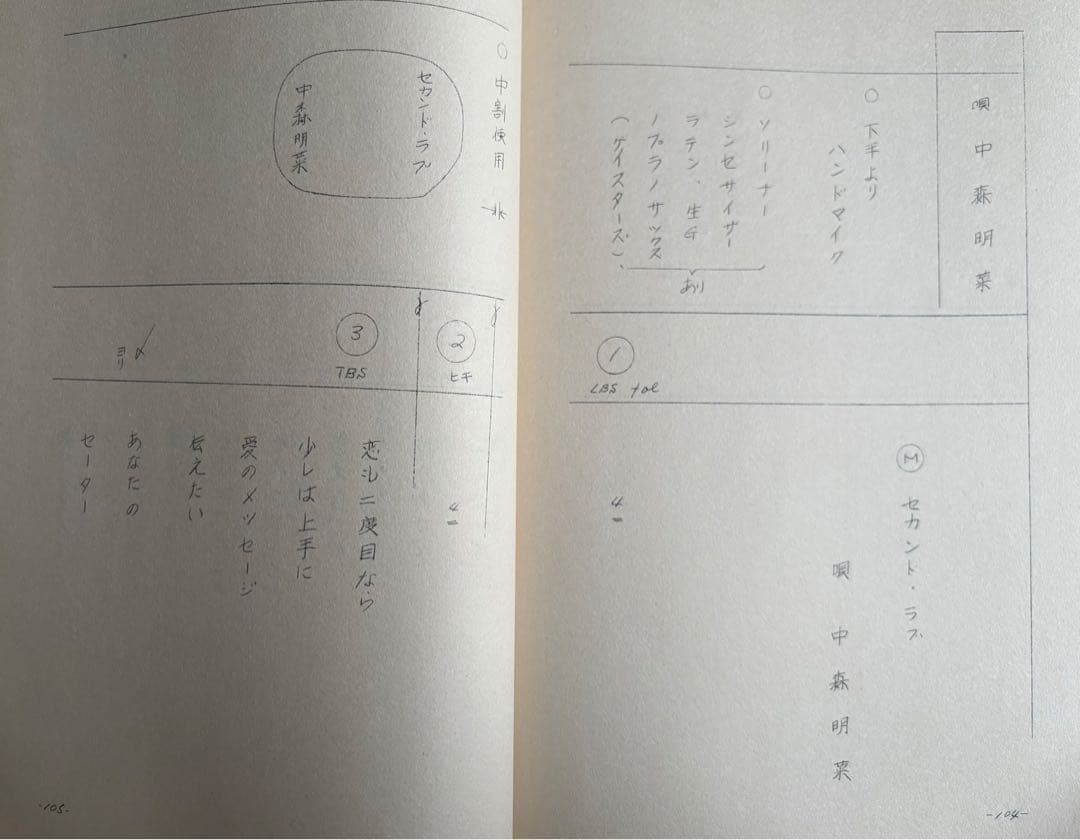 唄 中森明菜
○ 下手より
ハンドマイク
○ ソリーナー
シンセサイザー
ラテン、生G
ソプラノサックス
(ゲイスターズ)、
あり
①
LBS
Ⓜ セカンド・ラブ
唄 中森明菜
4
-104-
○ 中割使用
セカンド・ラブ
中森明菜
②
ヒキ
4
③
TBS
恋も二度目なら
少しは上手に
愛のメッセージ
伝えたい
〆
ヨリ
あなたの
セーター
-105-